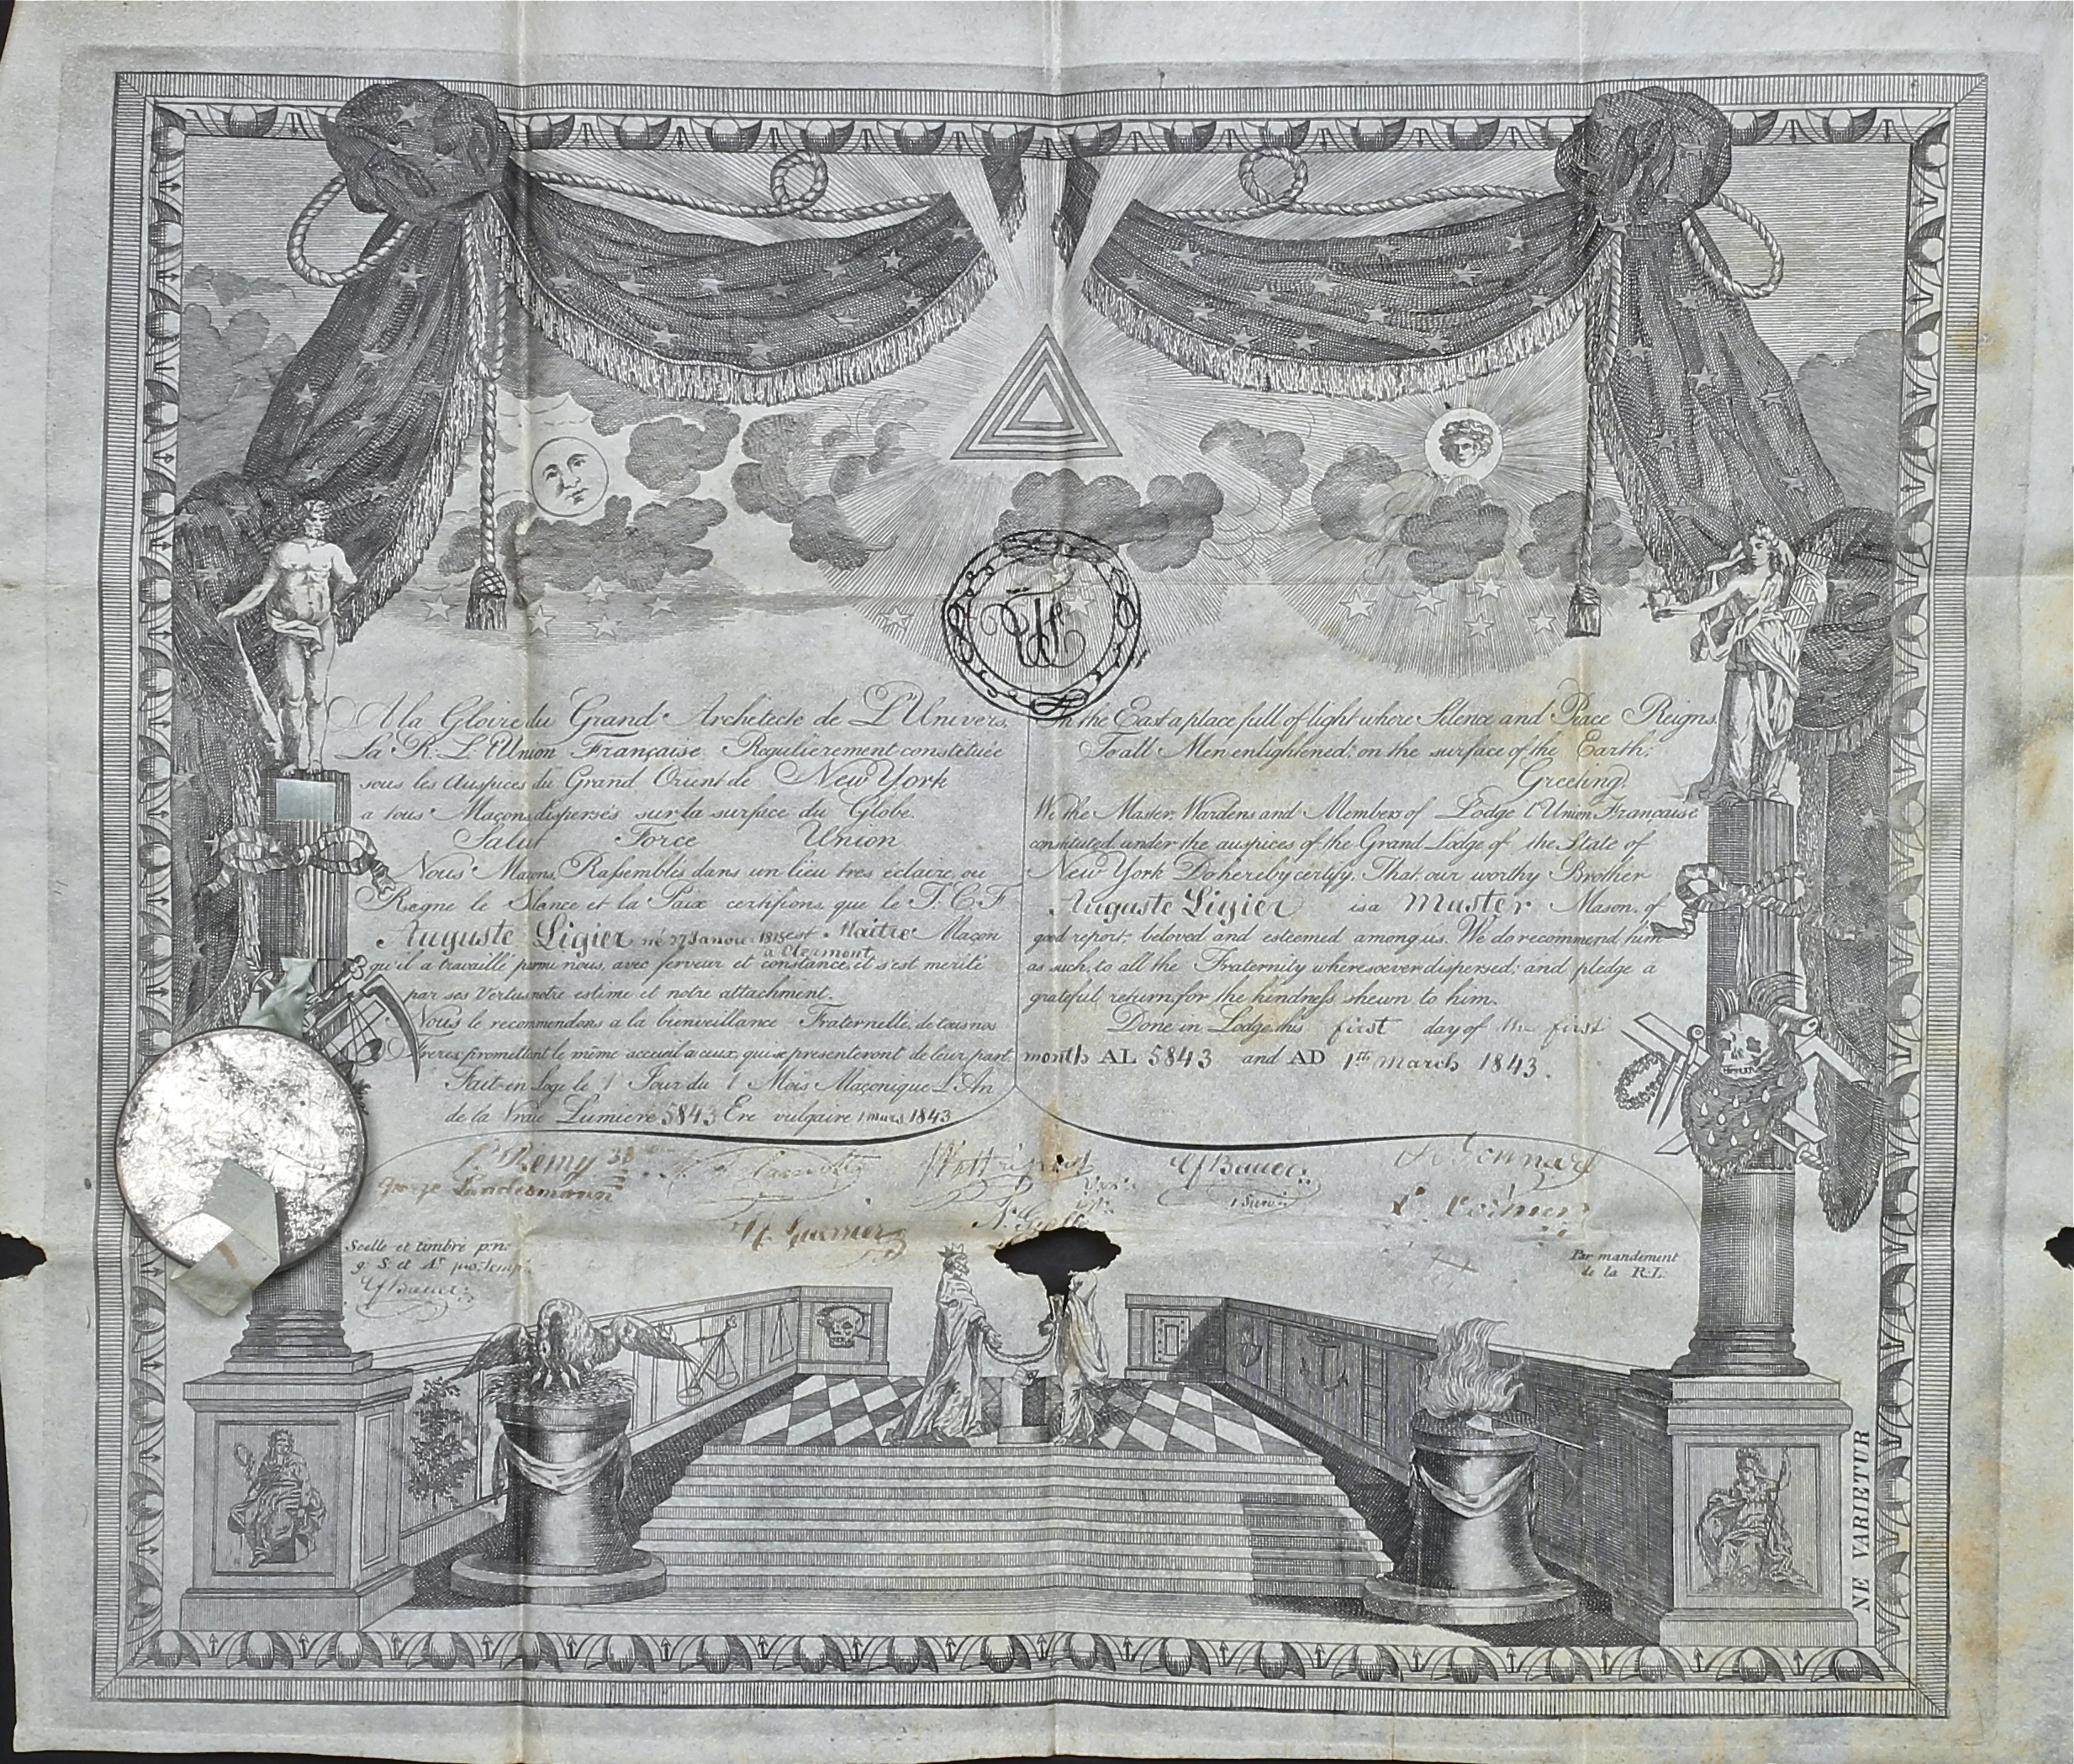 A la Gloire du Grand Architecte de L'Univers,
La R. L. L'Union Française Regulièrement constituée
sous les Auspices du Grand Orient de New York
a tous Maçons dispersés sur la surface du Globe.
Salut Force Union
Nous Maçons, Rassemblés dans un lieu tres éclairé, ou
Règne le Silence et la Paix certifions que le T. C. F.
Auguste Ligier né 27 Janvier 1815 est Maitre Maçon
a Clermont
qu'il a travaillé parmi nous, avec ferveur et constance, et s'est merité
par ses Vertus notre estime et notre attachment.
Nous le recommendons a la bienveillance Fraternelle, de tous nos
Freres promettant le même acceuil a ceux, qui se presenteront de leur part
Fait en Loge le 1 Jour du 1 Mois Maçonique L'An
de la Vraie Lumiere 5843 Ere vulgaire 1 mars 1843
In the East a place full of light where Silence and Peace Reigns,
To all Men enlightened; on the surface of the Earth;
Greeting.
We the Master, Wardens and Members of Lodge l'Union Française
constituted under the auspices of the Grand Lodge of the State of
New York Do hereby certify, That our worthy Brother
Auguste Ligier is a Master Mason, of
good report, beloved and esteemed among us. We do recommend him
as such, to all the Fraternity wheresoever dispersed; and pledge a
grateful return, for the kindness shewn to him.
Done in Lodge this first day of the first
month AL 5843 and AD 1st March 1843.
Remy 33
Cf Bauer
1 Surv
H. Garnier
Scellé et timbré p. n.
g. S. et A. pro. temp.
Cf Bauer
Par mandement
de la R. L.
NE VARIETUR